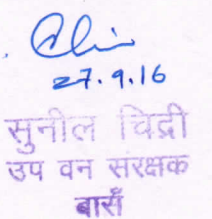 27.9.16
सुनील चिद्री
उप वन संरक्षक
बार्सं